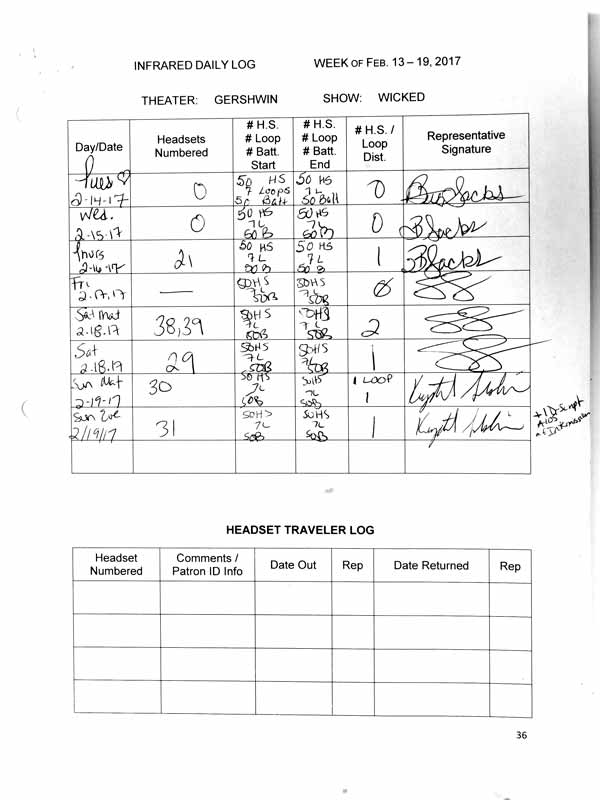 INFRARED DAILY LOG WEEK OF FEB. 13 – 19, 2017
THEATER: GERSHWIN SHOW: WICKED
Day/Date
Headsets Numbered
# H.S. # Loop # Batt. Start
# H.S. # Loop # Batt. End
# H.S. / Loop Dist.
Representative Signature
Tues ♡ 2-14-17 0 50 HS 7 Loops 50 Batt 50 HS 7 L 50 Batt 0
Wed. 2-15-17 0 50 HS 7L 50 B 50 HS 7L 50 B 0 BSacks
Thurs 2-16-17 21 50 HS 7L 50 B 50 HS 7L 50 B 1 BSacks
Fri 2.17.17 — 50HS 7L 50B 50HS 7L 50B 0
Sat Mat 2.18.17 38,39 50HS 7L 50B 50HS 7L 50B 2
Sat 2.18.17 29 50HS 7L 50B 50HS 7L 50B 1
Sun Mat 2-19-17 30 50HS 7L 50B 50HS 7L 50B 1 LOOP 1
Sun Eve 2/19/17 31 50HS 7L 50B 50HS 7L 50B 1
+1 D-Script
at Intermission
HEADSET TRAVELER LOG
Headset Numbered
Comments / Patron ID Info
Date Out
Rep
Date Returned
Rep
36